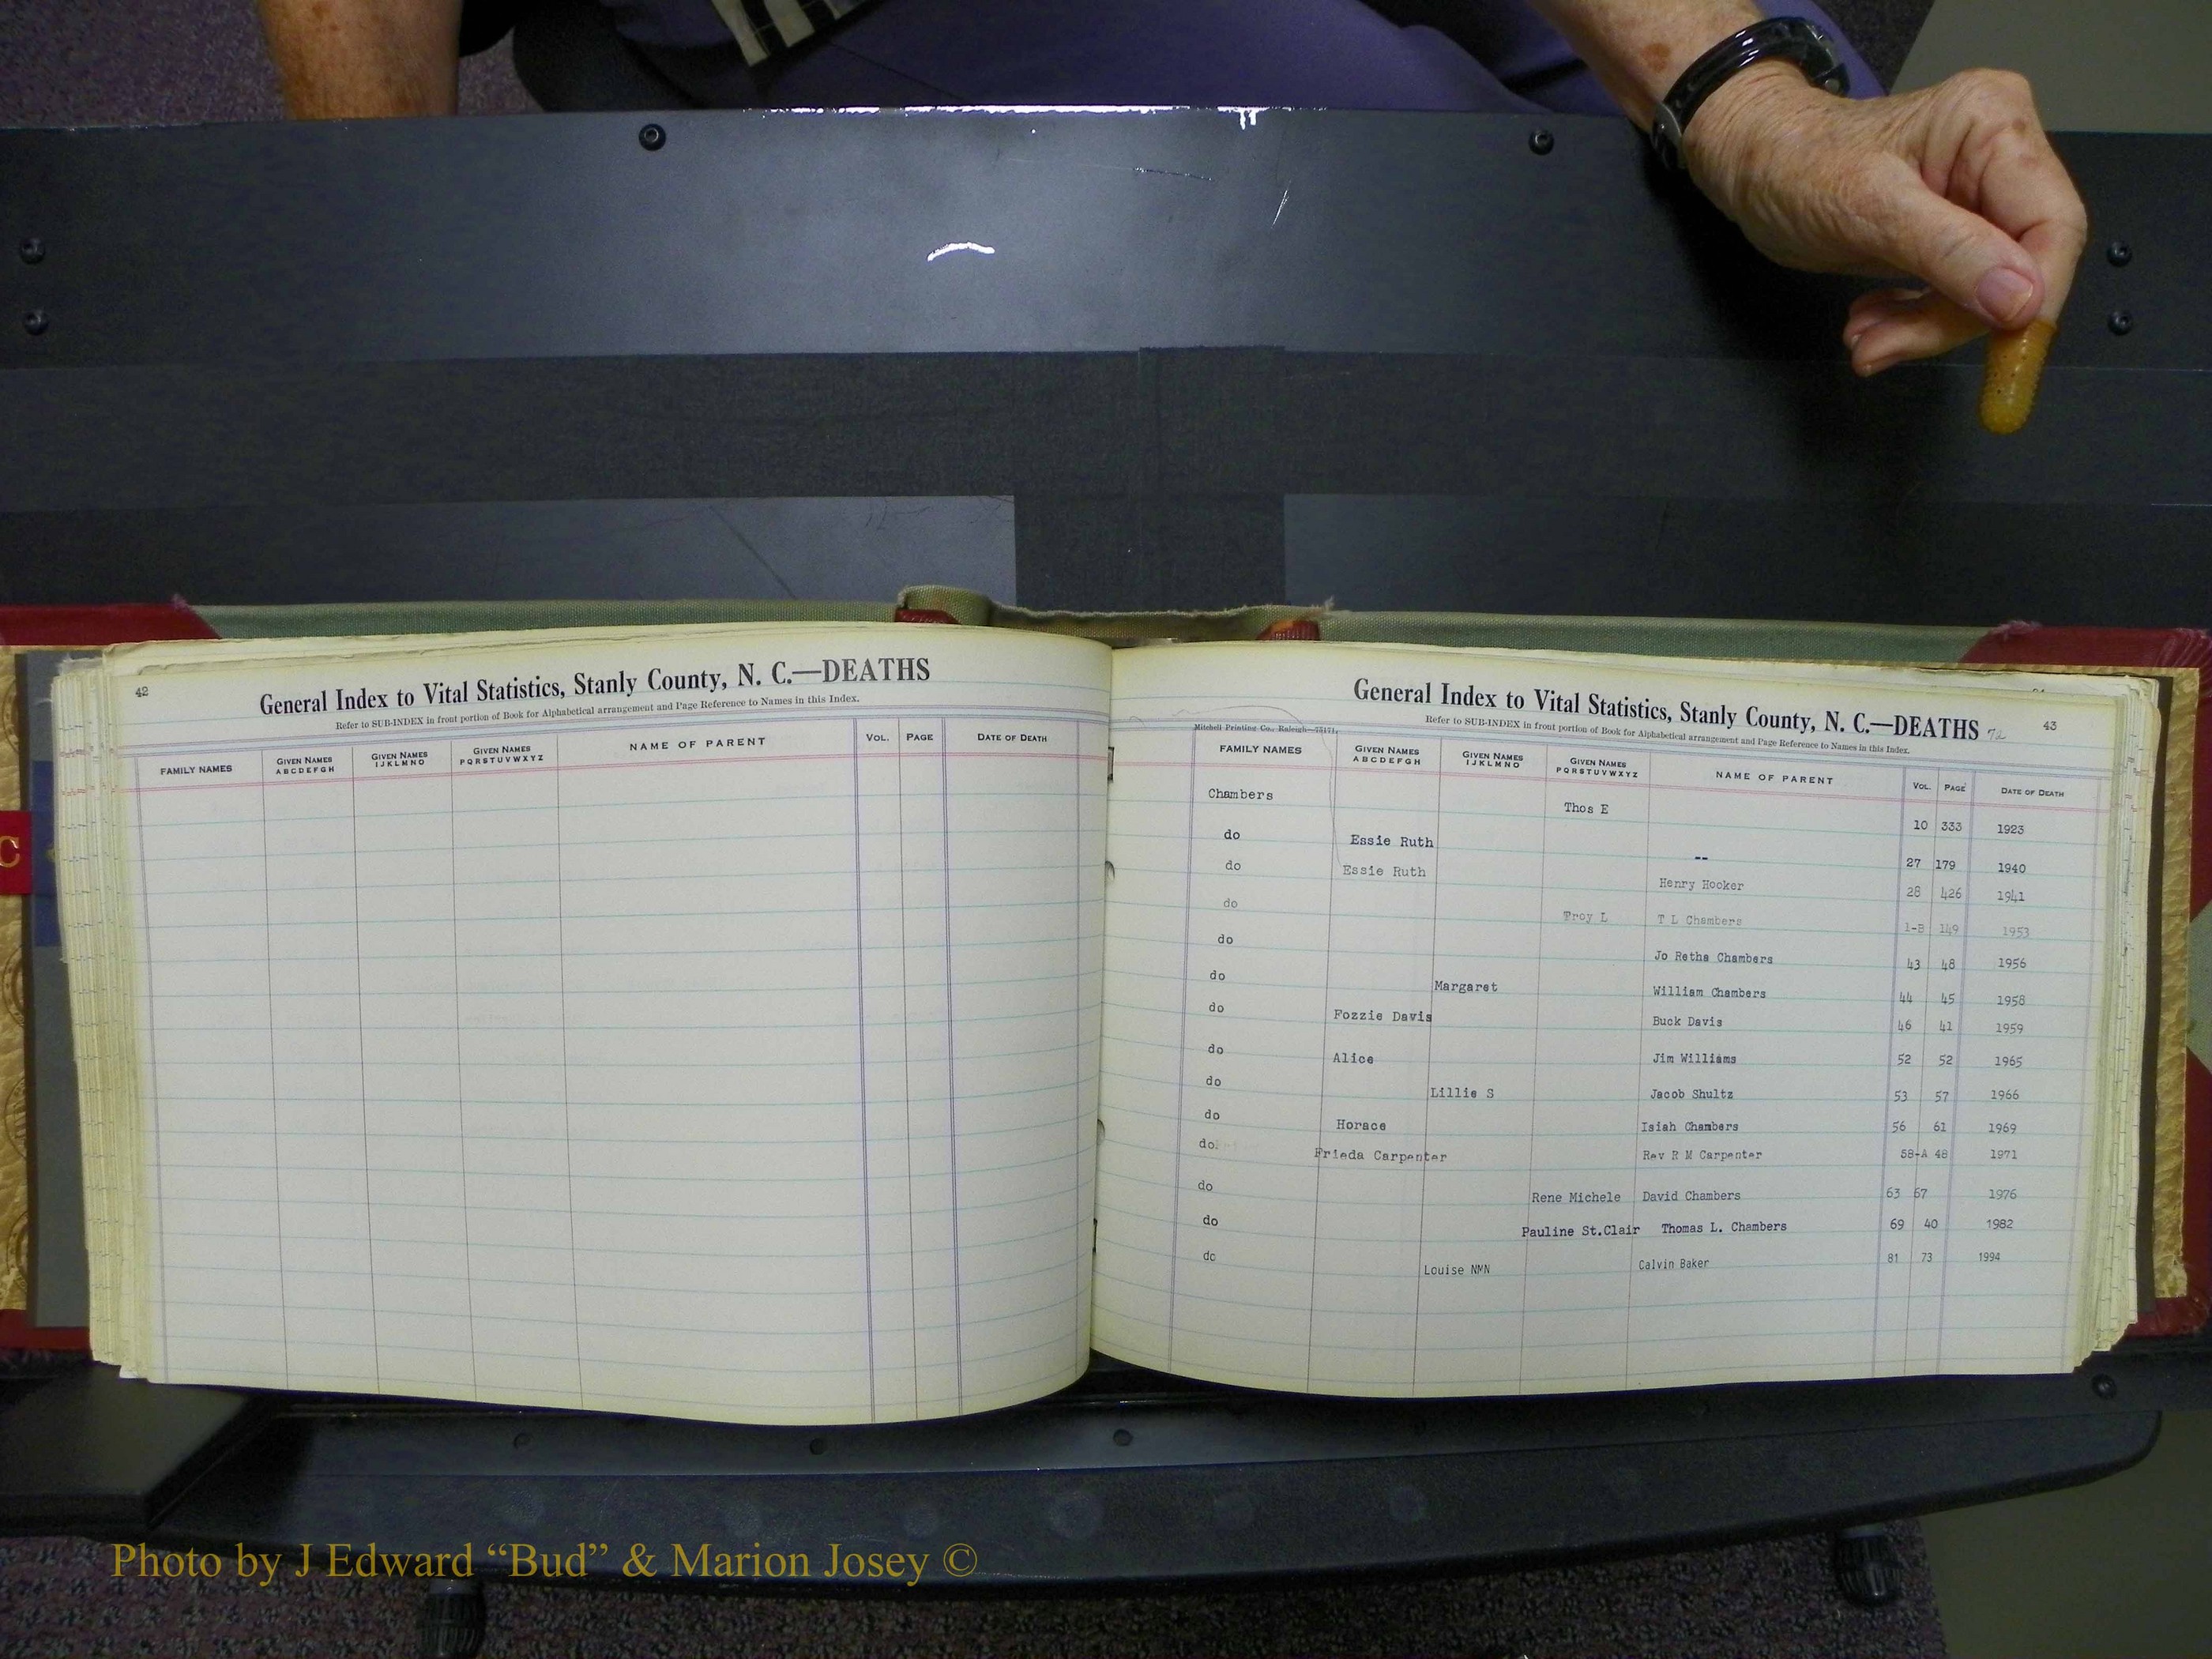 42
General Index to Vital Statistics, Stanly County, N. C.—DEATHS
Refer to SUB-INDEX in front portion of Book for Alphabetical arrangement and Page Reference to Names in this Index.
FAMILY NAMES GIVEN NAMES ABCDEFGH GIVEN NAMES IJKLMNO GIVEN NAMES PQRSTUVWXYZ NAME OF PARENT VOL. PAGE DATE OF DEATH
C
43
General Index to Vital Statistics, Stanly County, N. C.—DEATHS 72
Refer to SUB-INDEX in front portion of Book for Alphabetical arrangement and Page Reference to Names in this Index.
Mitchell Printing Co., Raleigh—75171.
FAMILY NAMES GIVEN NAMES ABCDEFGH GIVEN NAMES IJKLMNO GIVEN NAMES PQRSTUVWXYZ NAME OF PARENT VOL. PAGE DATE OF DEATH
Chambers Thos E 10 333 1923
do Essie Ruth -- 27 179 1940
do Essie Ruth Henry Hocker 28 426 1941
do Troy L T L Chambers 1-B 149 1953
do Jo Retha Chambers 43 48 1956
do Margaret William Chambers 44 45 1958
do Fozzie Davis Buck Davis 46 41 1959
do Alice Jim Williams 52 52 1965
do Lillie S Jacob Shultz 53 57 1966
do Horace Isiah Chambers 56 61 1969
do Frieda Carpenter Rev R M Carpenter 58-A 48 1971
do Rene Michele David Chambers 63 67 1976
do Pauline St.Clair Thomas L. Chambers 69 40 1982
do Louise NMN Calvin Baker 81 73 1994
Photo by J Edward “Bud” & Marion Josey ©